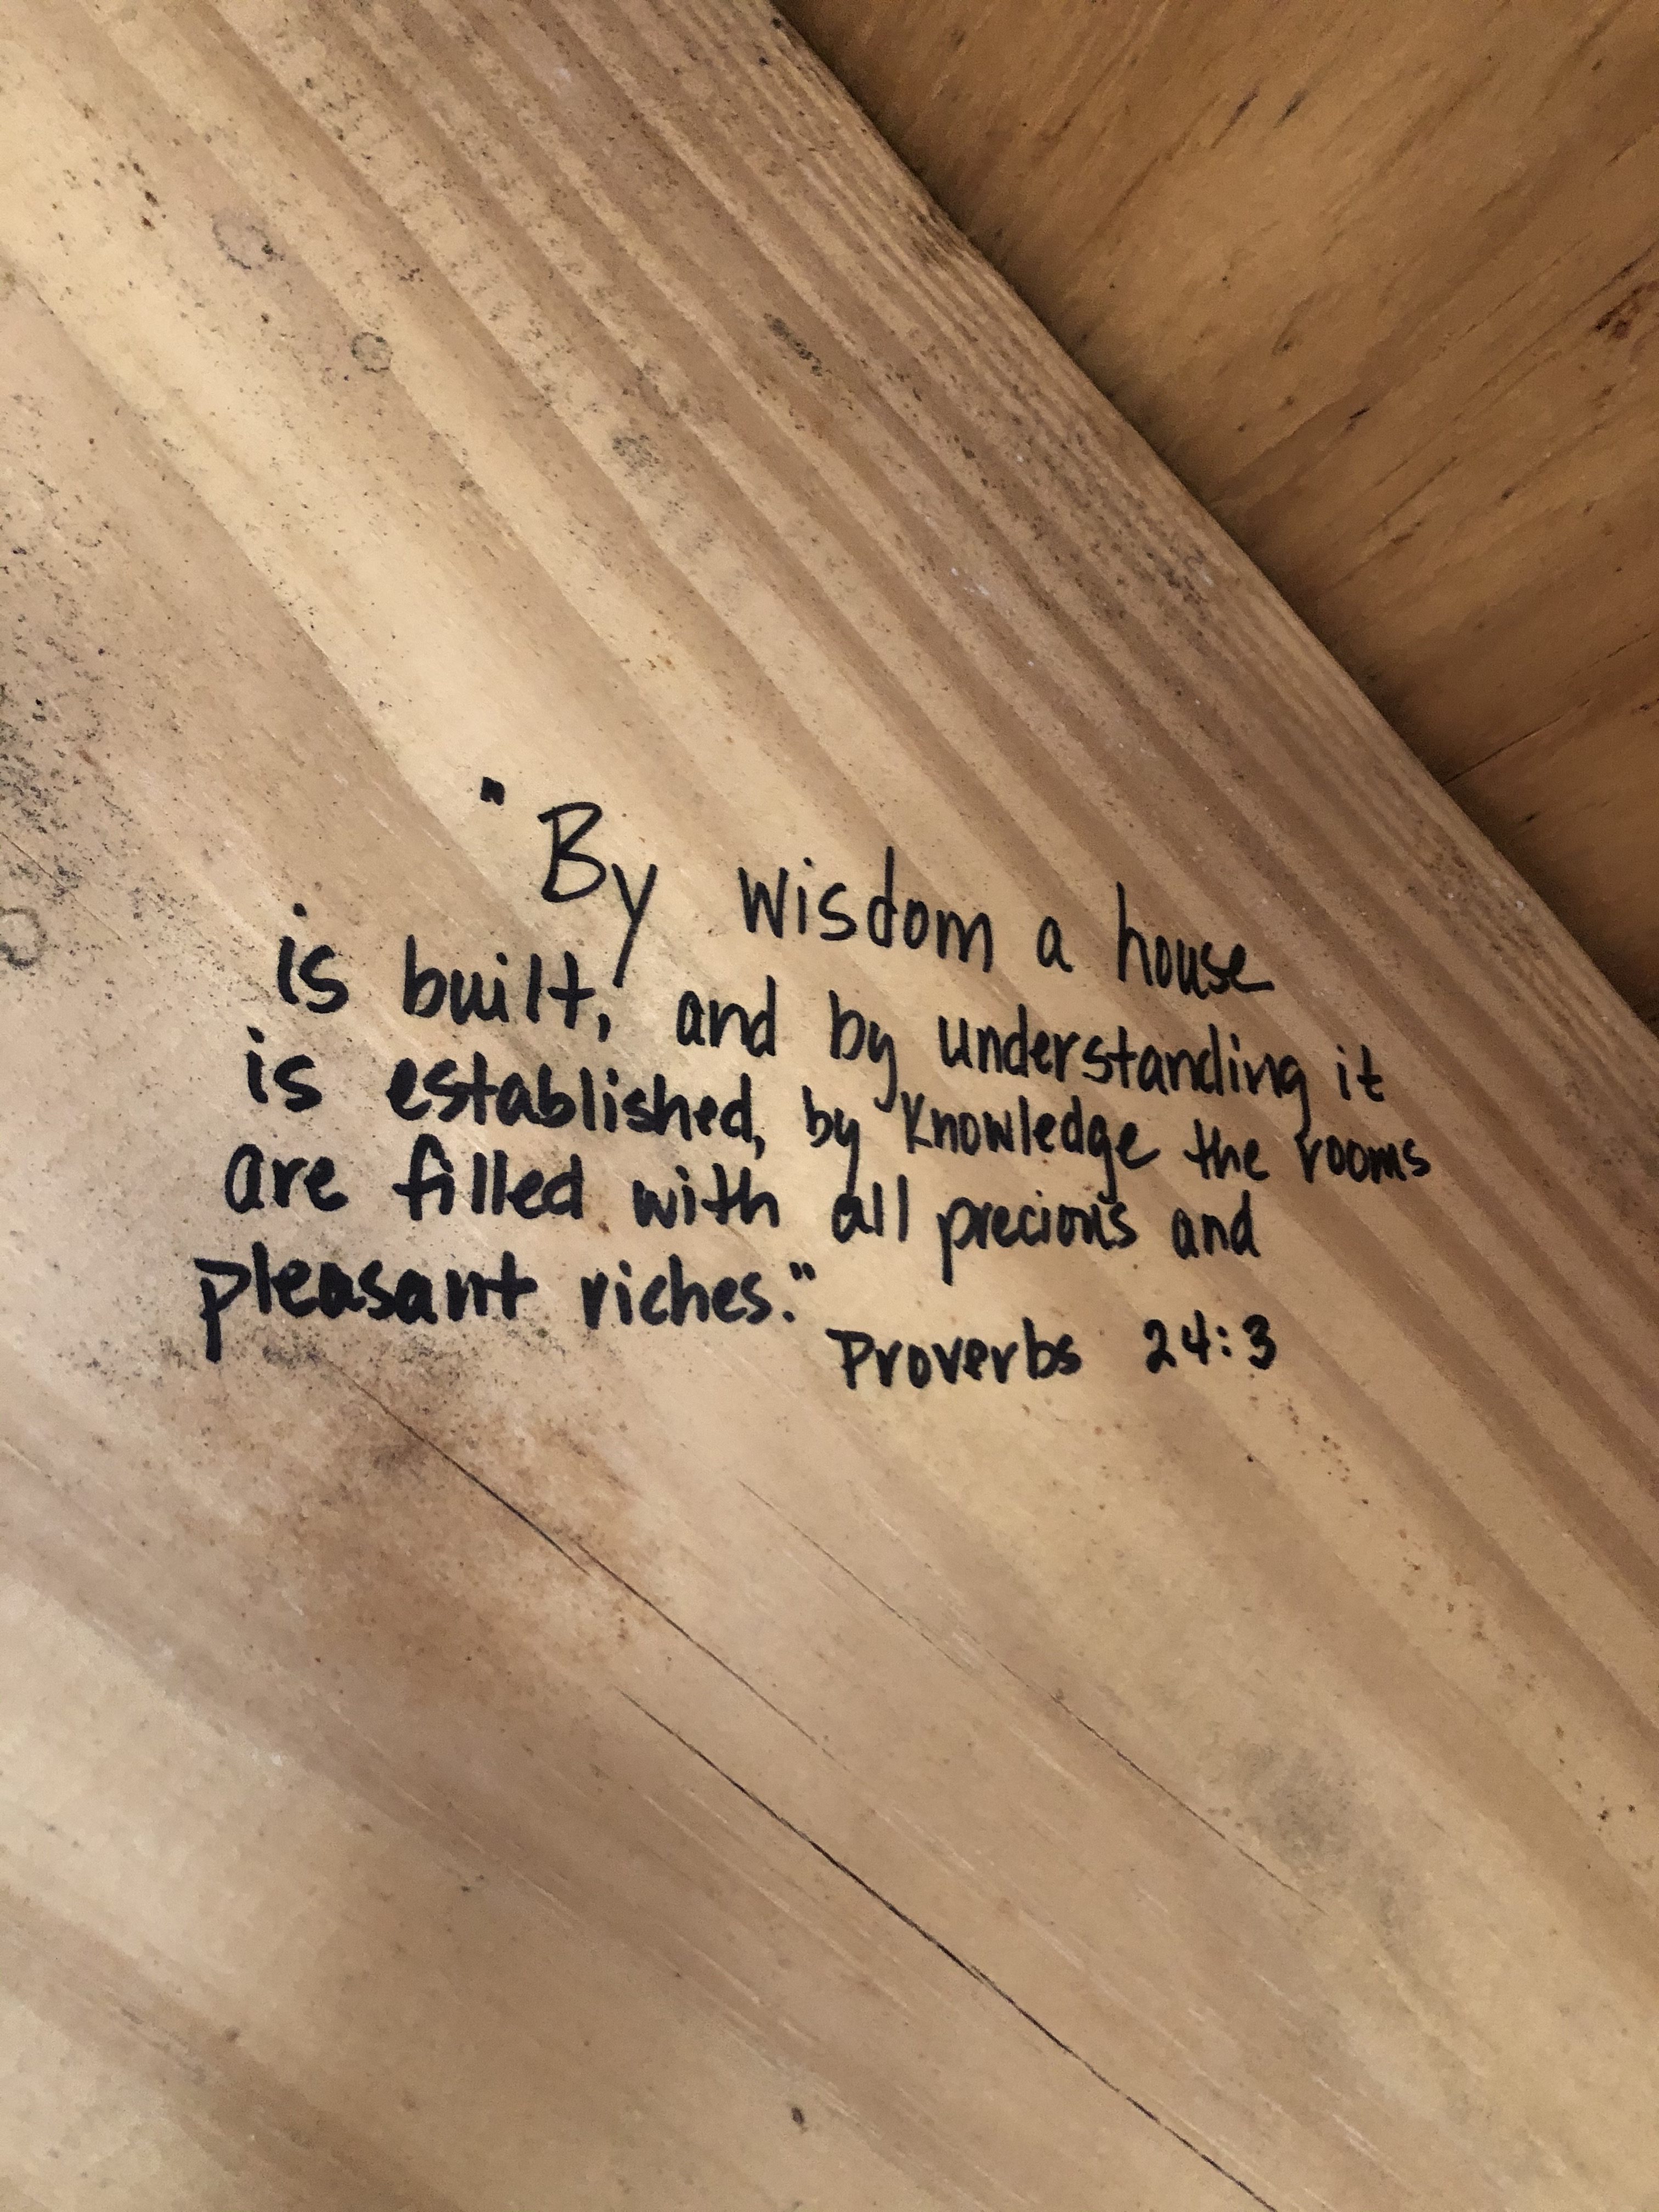 "By wisdom a house
is built, and by understanding it
is established, by knowledge the rooms
are filled with all precious and
pleasant riches."
Proverbs 24:3